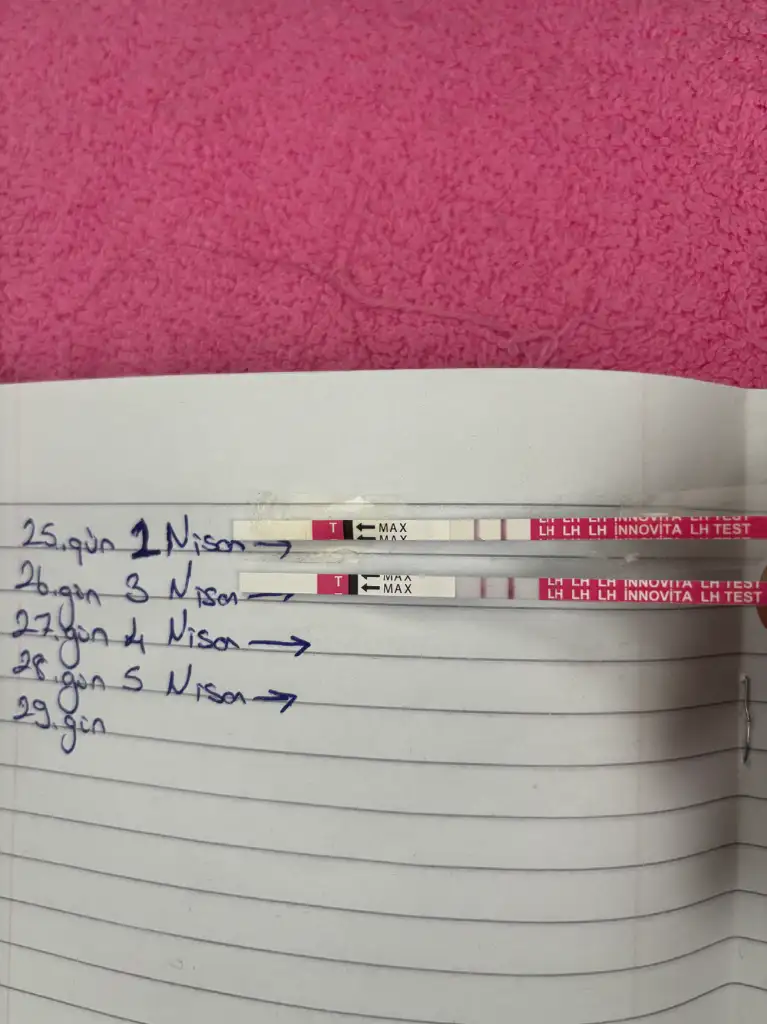 25.gün 1 Nisan →
T ← MAX
MAX
LH LH LH İNNOVİTA LH TEST
LH LH LH İNNOVİTA LH TEST
26.gün 3 Nisan →
T ← MAX
← MAX
LH LH LH İNNOVİTA LH TEST
LH LH LH İNNOVİTA LH TEST
27.gün 4 Nisan →
28.gün 5 Nisan →
29.gün